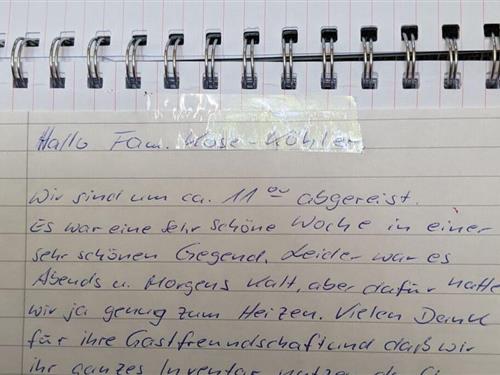 Hallo Fam. Kose-Köhler,
Wir sind um ca. 11⁰⁰ abgereist.
Es war eine sehr schöne Woche in einer
sehr schönen Gegend. Leider war es
Abends u. Morgens kalt, aber dafür hatte
wir ja genug zum Heizen. Vielen Dank
für ihre Gastfreundschaft und daß wir
ihr ganzes Inventar